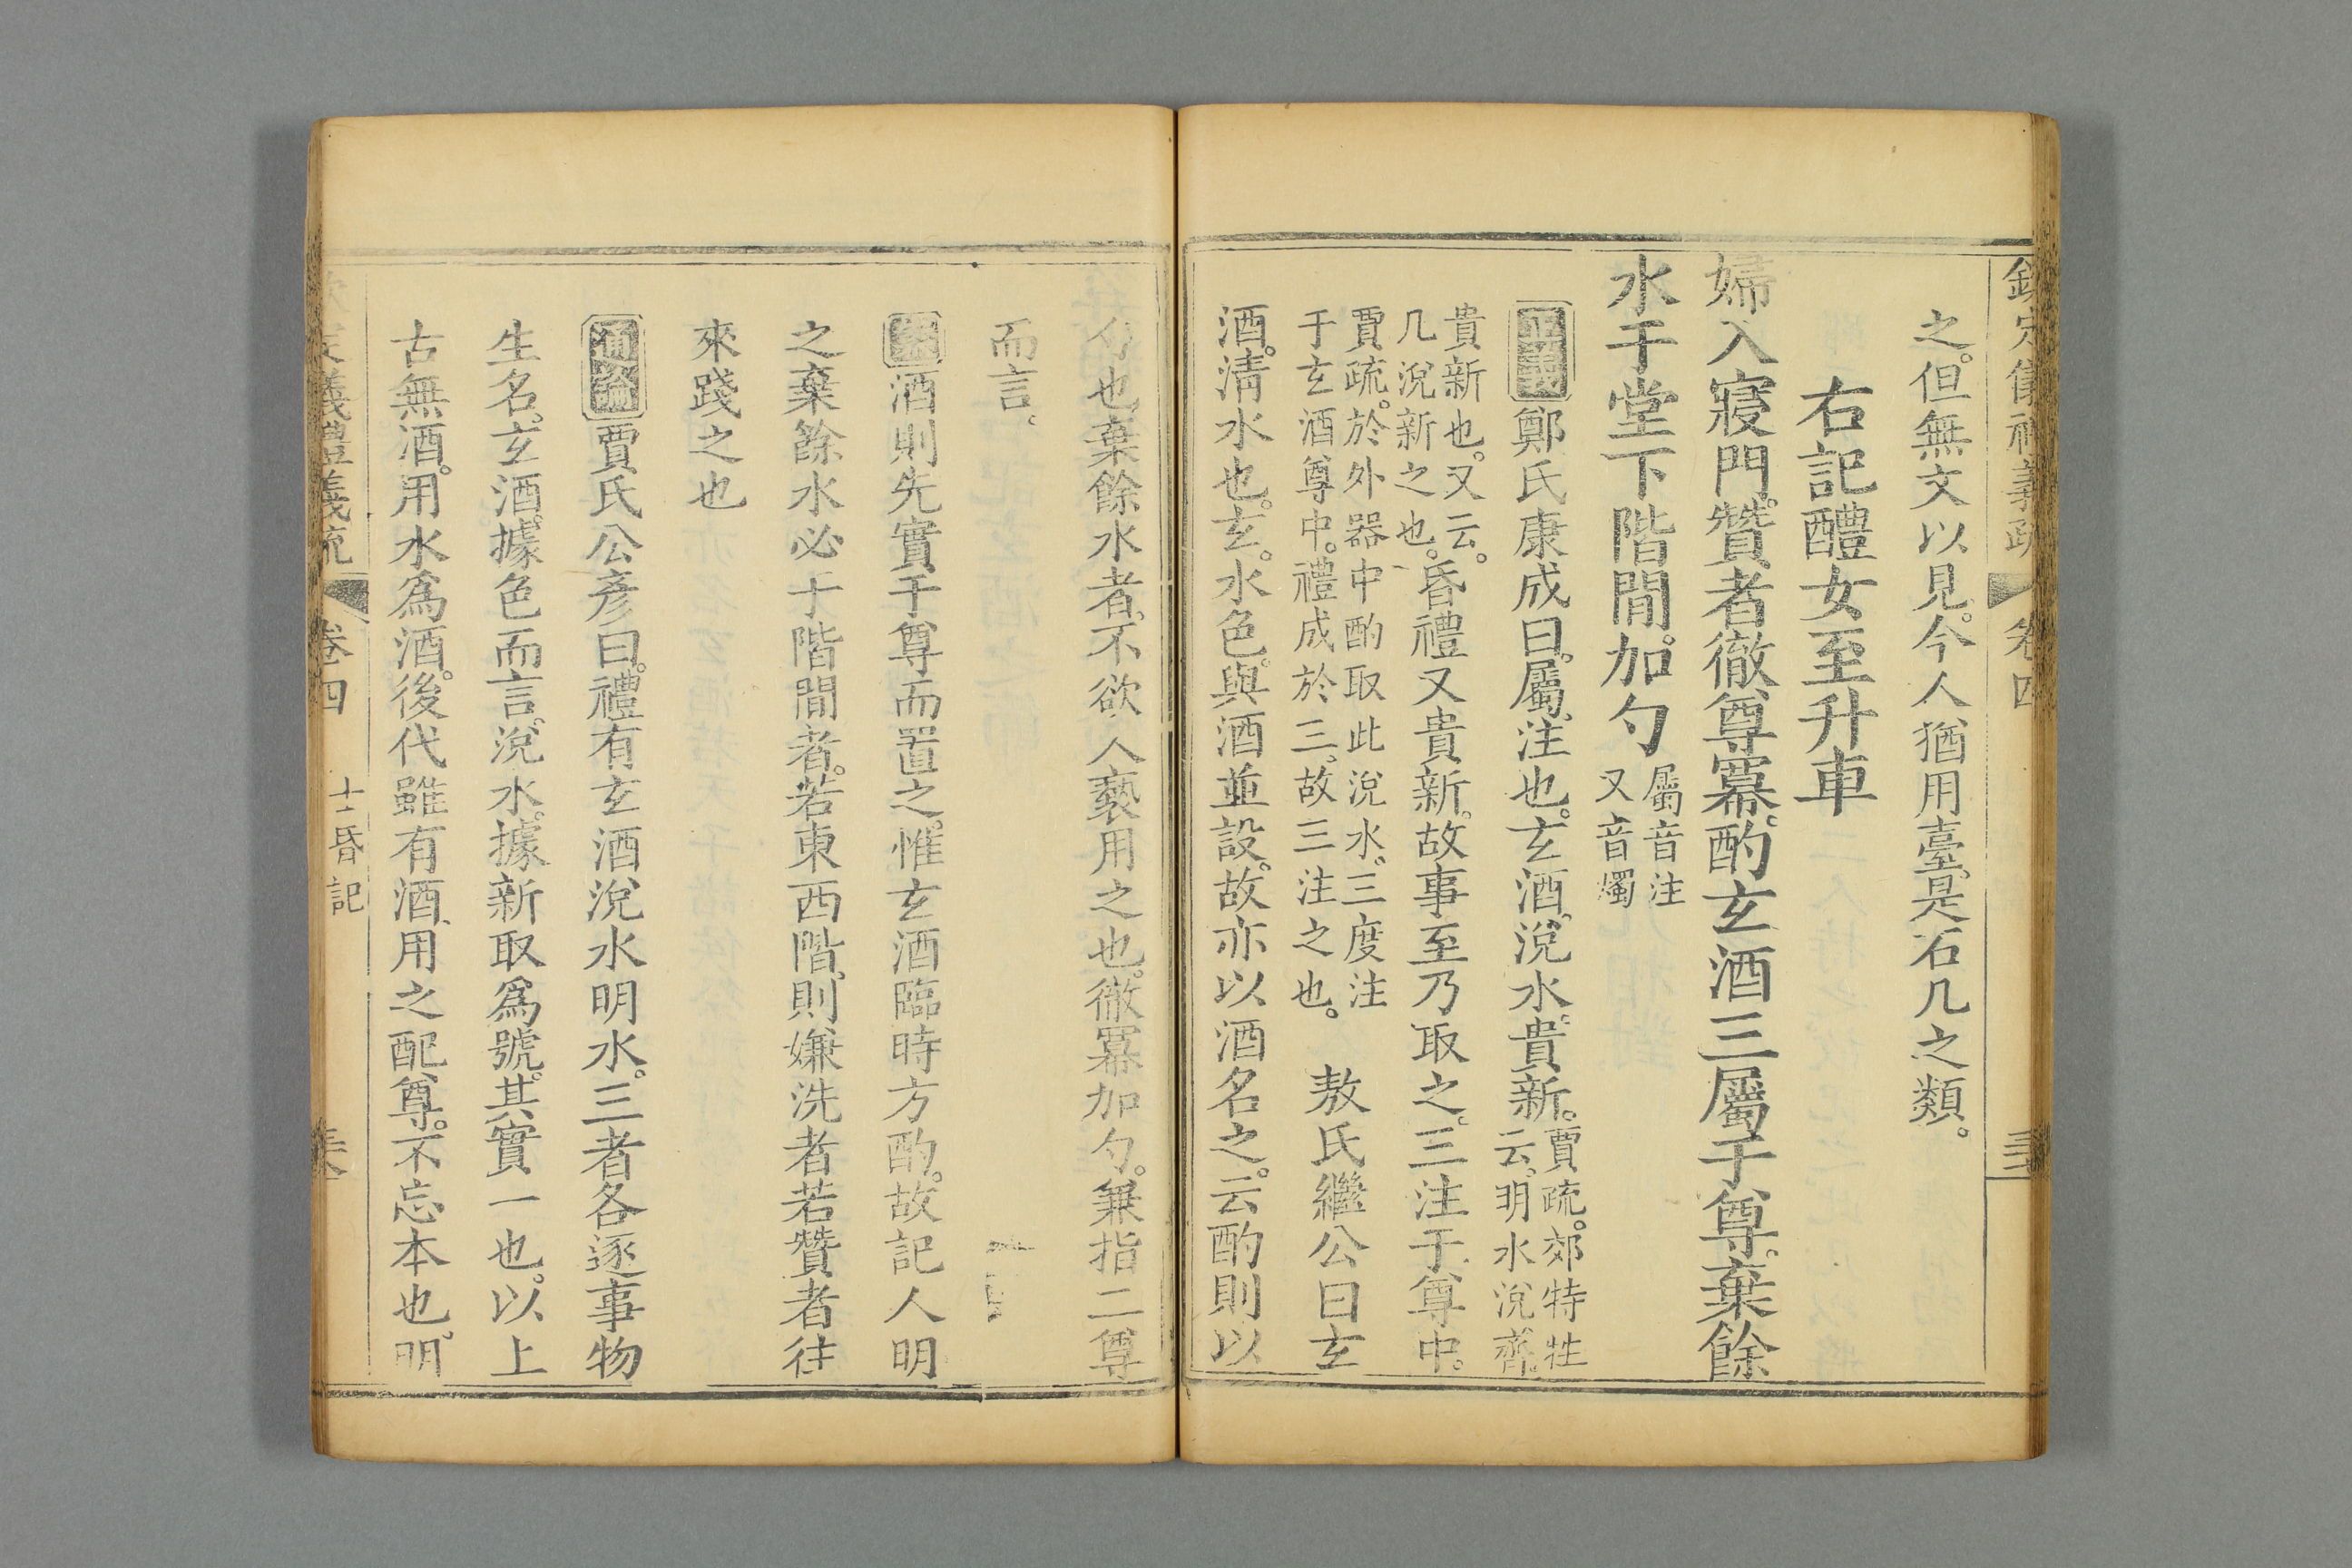 之。但無文以見。今人猶用臺。是石几之類。
右記醴女至升車
婦入寢門。贊者徹尊冪。酌玄酒三屬于尊。棄餘
水于堂下階間。加勺 屬音注
又音燭
正義 鄭氏康成曰。屬、注也。玄酒。涚水。貴新。賈疏。郊特牲
云。明水涚齊。
貴新也。又云。
几涚新之也。昏禮又貴新。故事至乃取之。三注于尊中。
賈疏。於外器中酌取此涚水。三度注
于玄酒尊中。禮成於三。故三注之也。 敖氏繼公曰玄
酒。淸水也。玄。水色。與酒並設。故亦以酒名之。云酌則以
勺也。棄餘水者、不欲人褻用之也。徹冪加勺。兼指二尊
而言。
酒則先實于尊而置之。惟玄酒臨時方酌。故記人明
之棄餘水必于階間者。若東西階、則嫌洗者若贊者往
來踐之也
通論 賈氏公彥曰。禮有玄酒涚水明水。三者各逐事物
生名。玄酒。據色而言。涚水。據新取爲號。其實一也。以上
古無酒。用水爲酒。後代雖有酒、用之配尊。不忘本也。明
卷四 士昏記